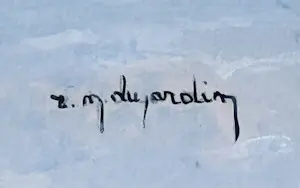 r. m. dujardin